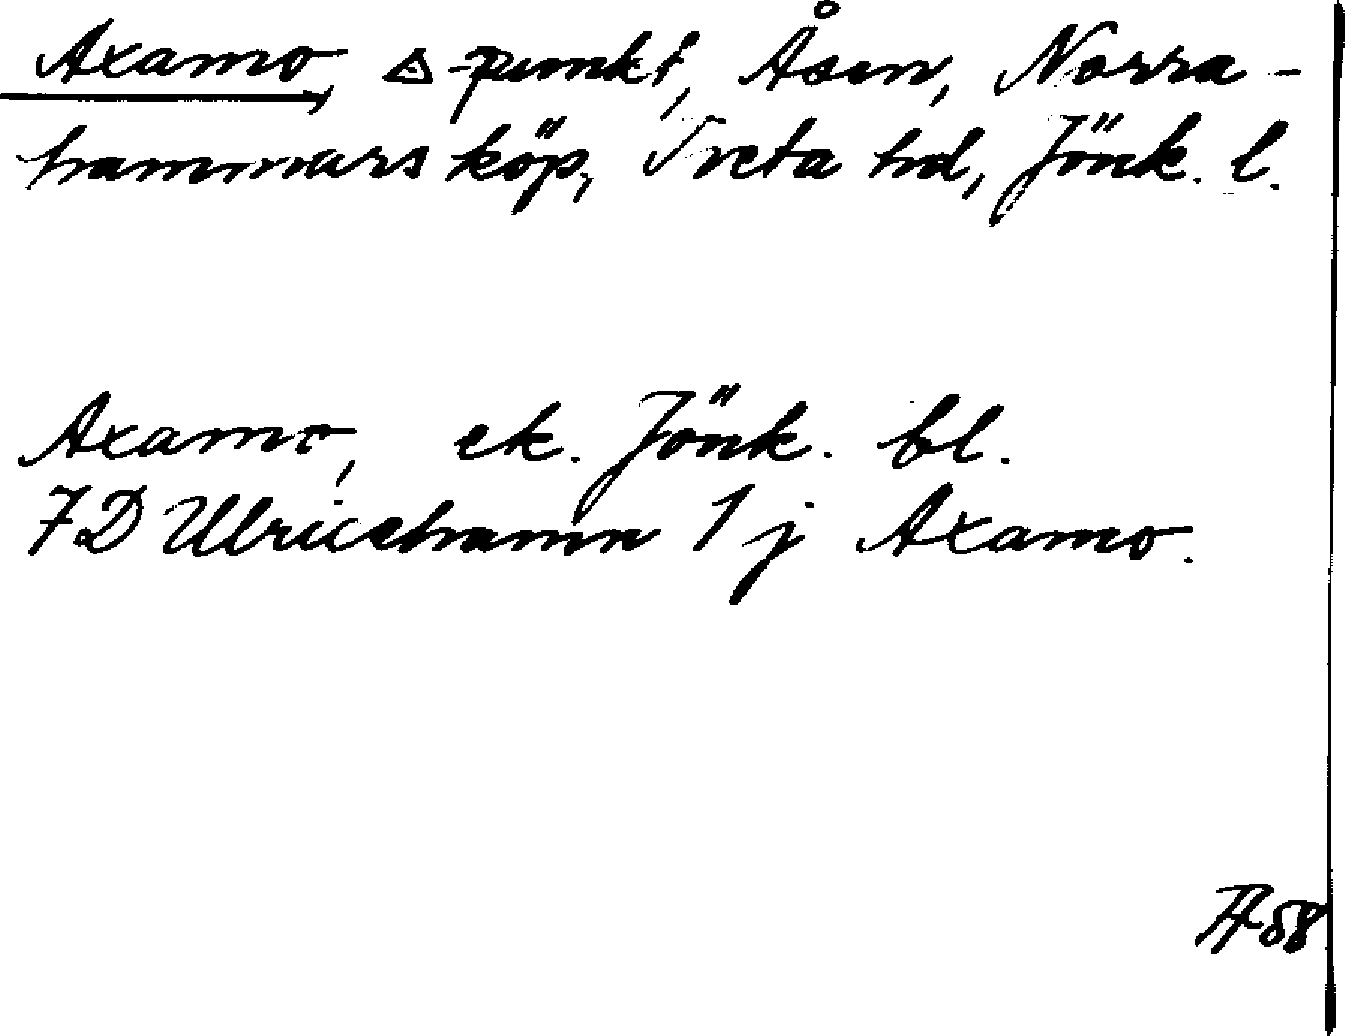 Axamo, △-punkt, Åsen, Norra-
hammars köp, Tveta hd, Jönk. l.
Axamo, ek. Jönk. bl.
7D Ulricehamn 1 j Axamo.